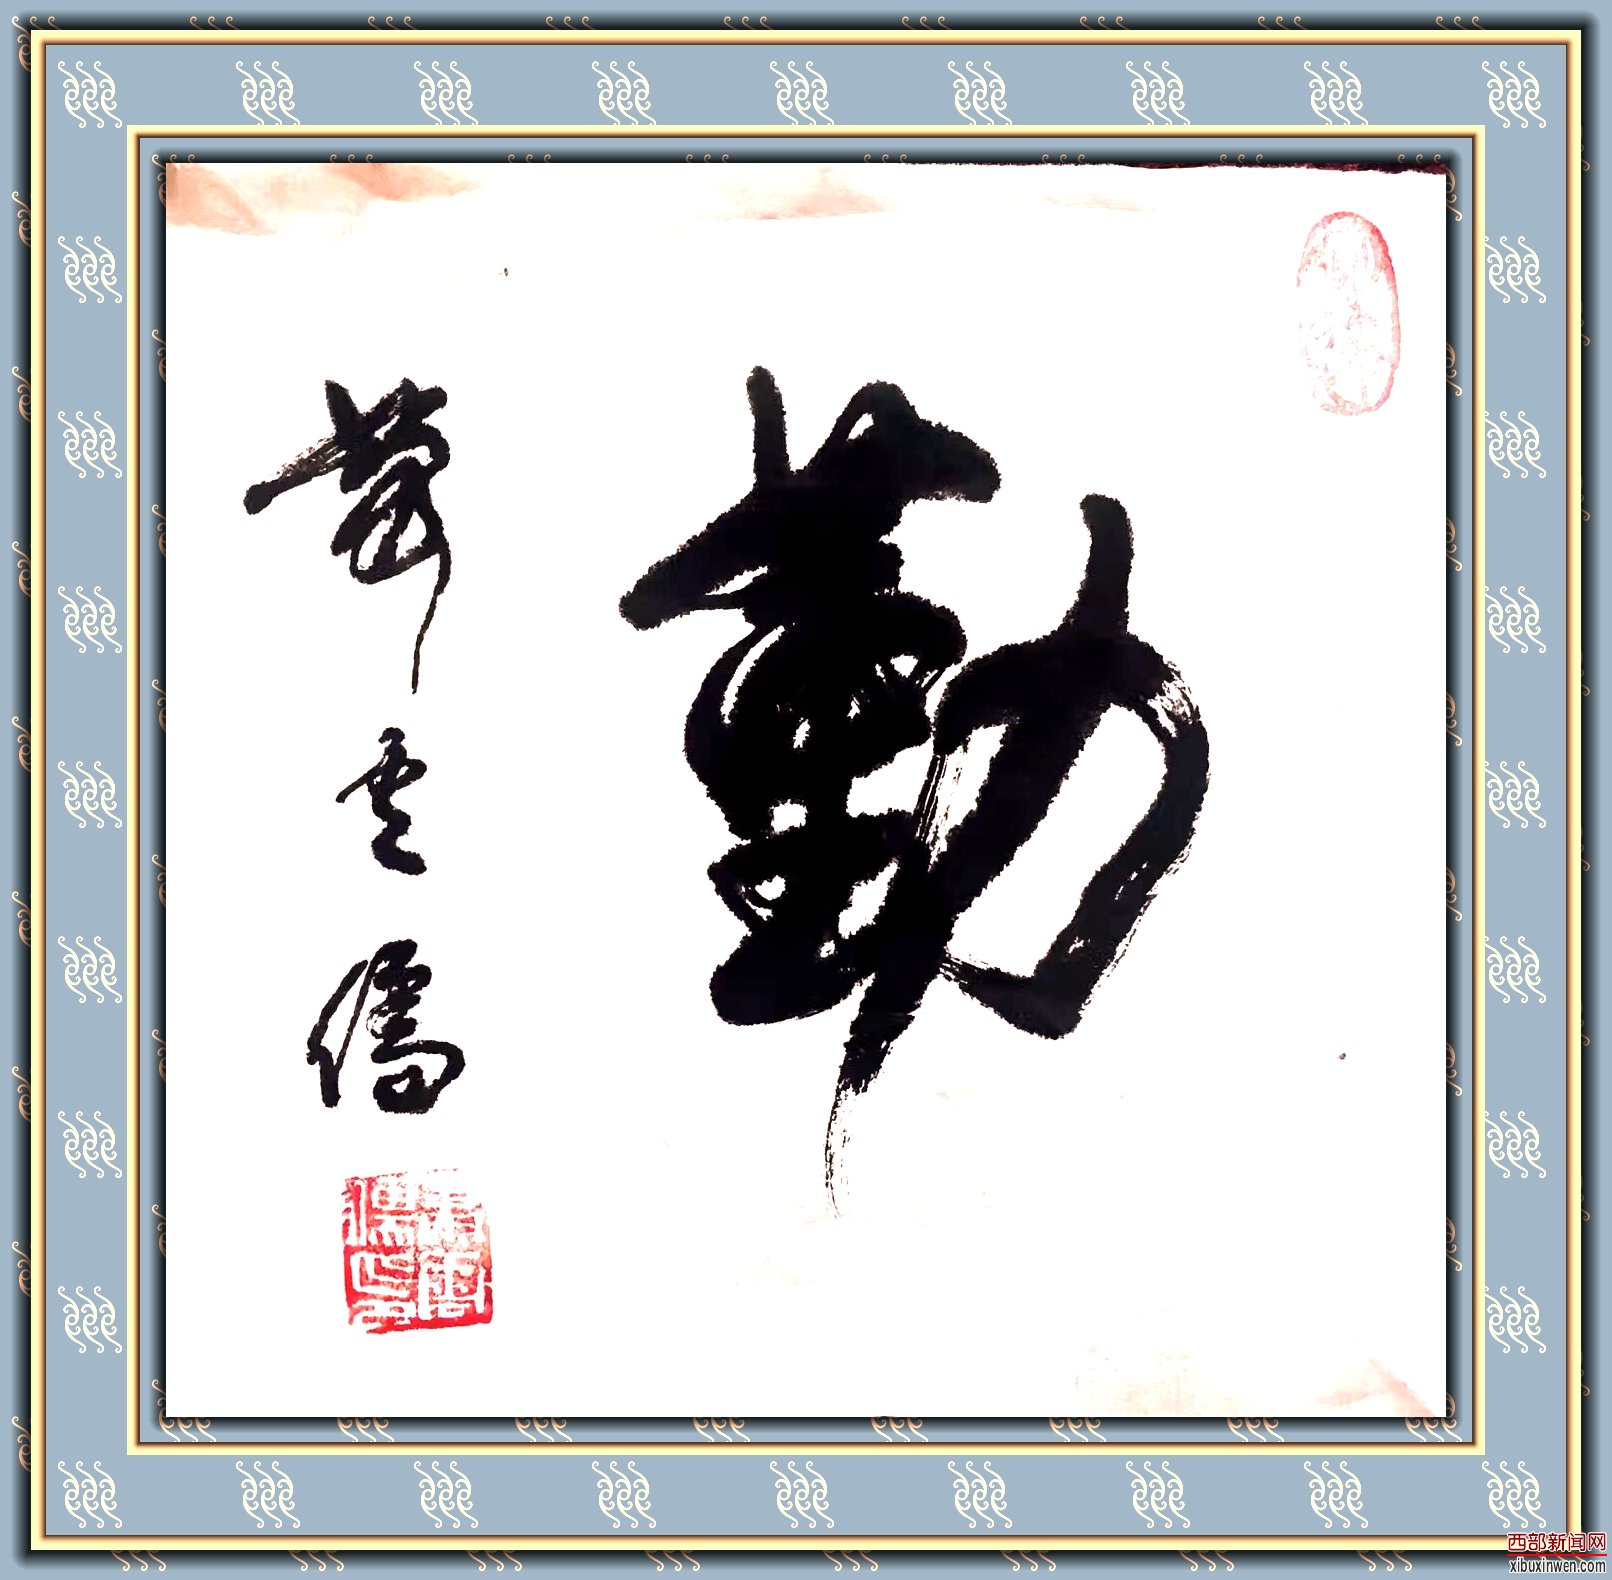 勤
蕭云儒
西部新闻网
xibuxinwen.com